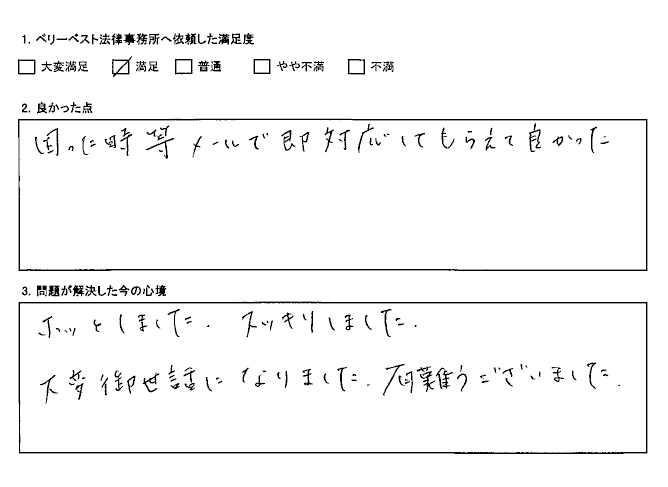 1. ベリーベスト法律事務所へ依頼した満足度
□ 大変満足 ☑ 満足 □ 普通 □ やや不満 □ 不満
2. 良かった点
困った時等メールで即対応してもらえて良かった
3. 問題が解決した今の心境
ホッとしました. スッキリしました.
大変御世話になりました. 有難うございました.